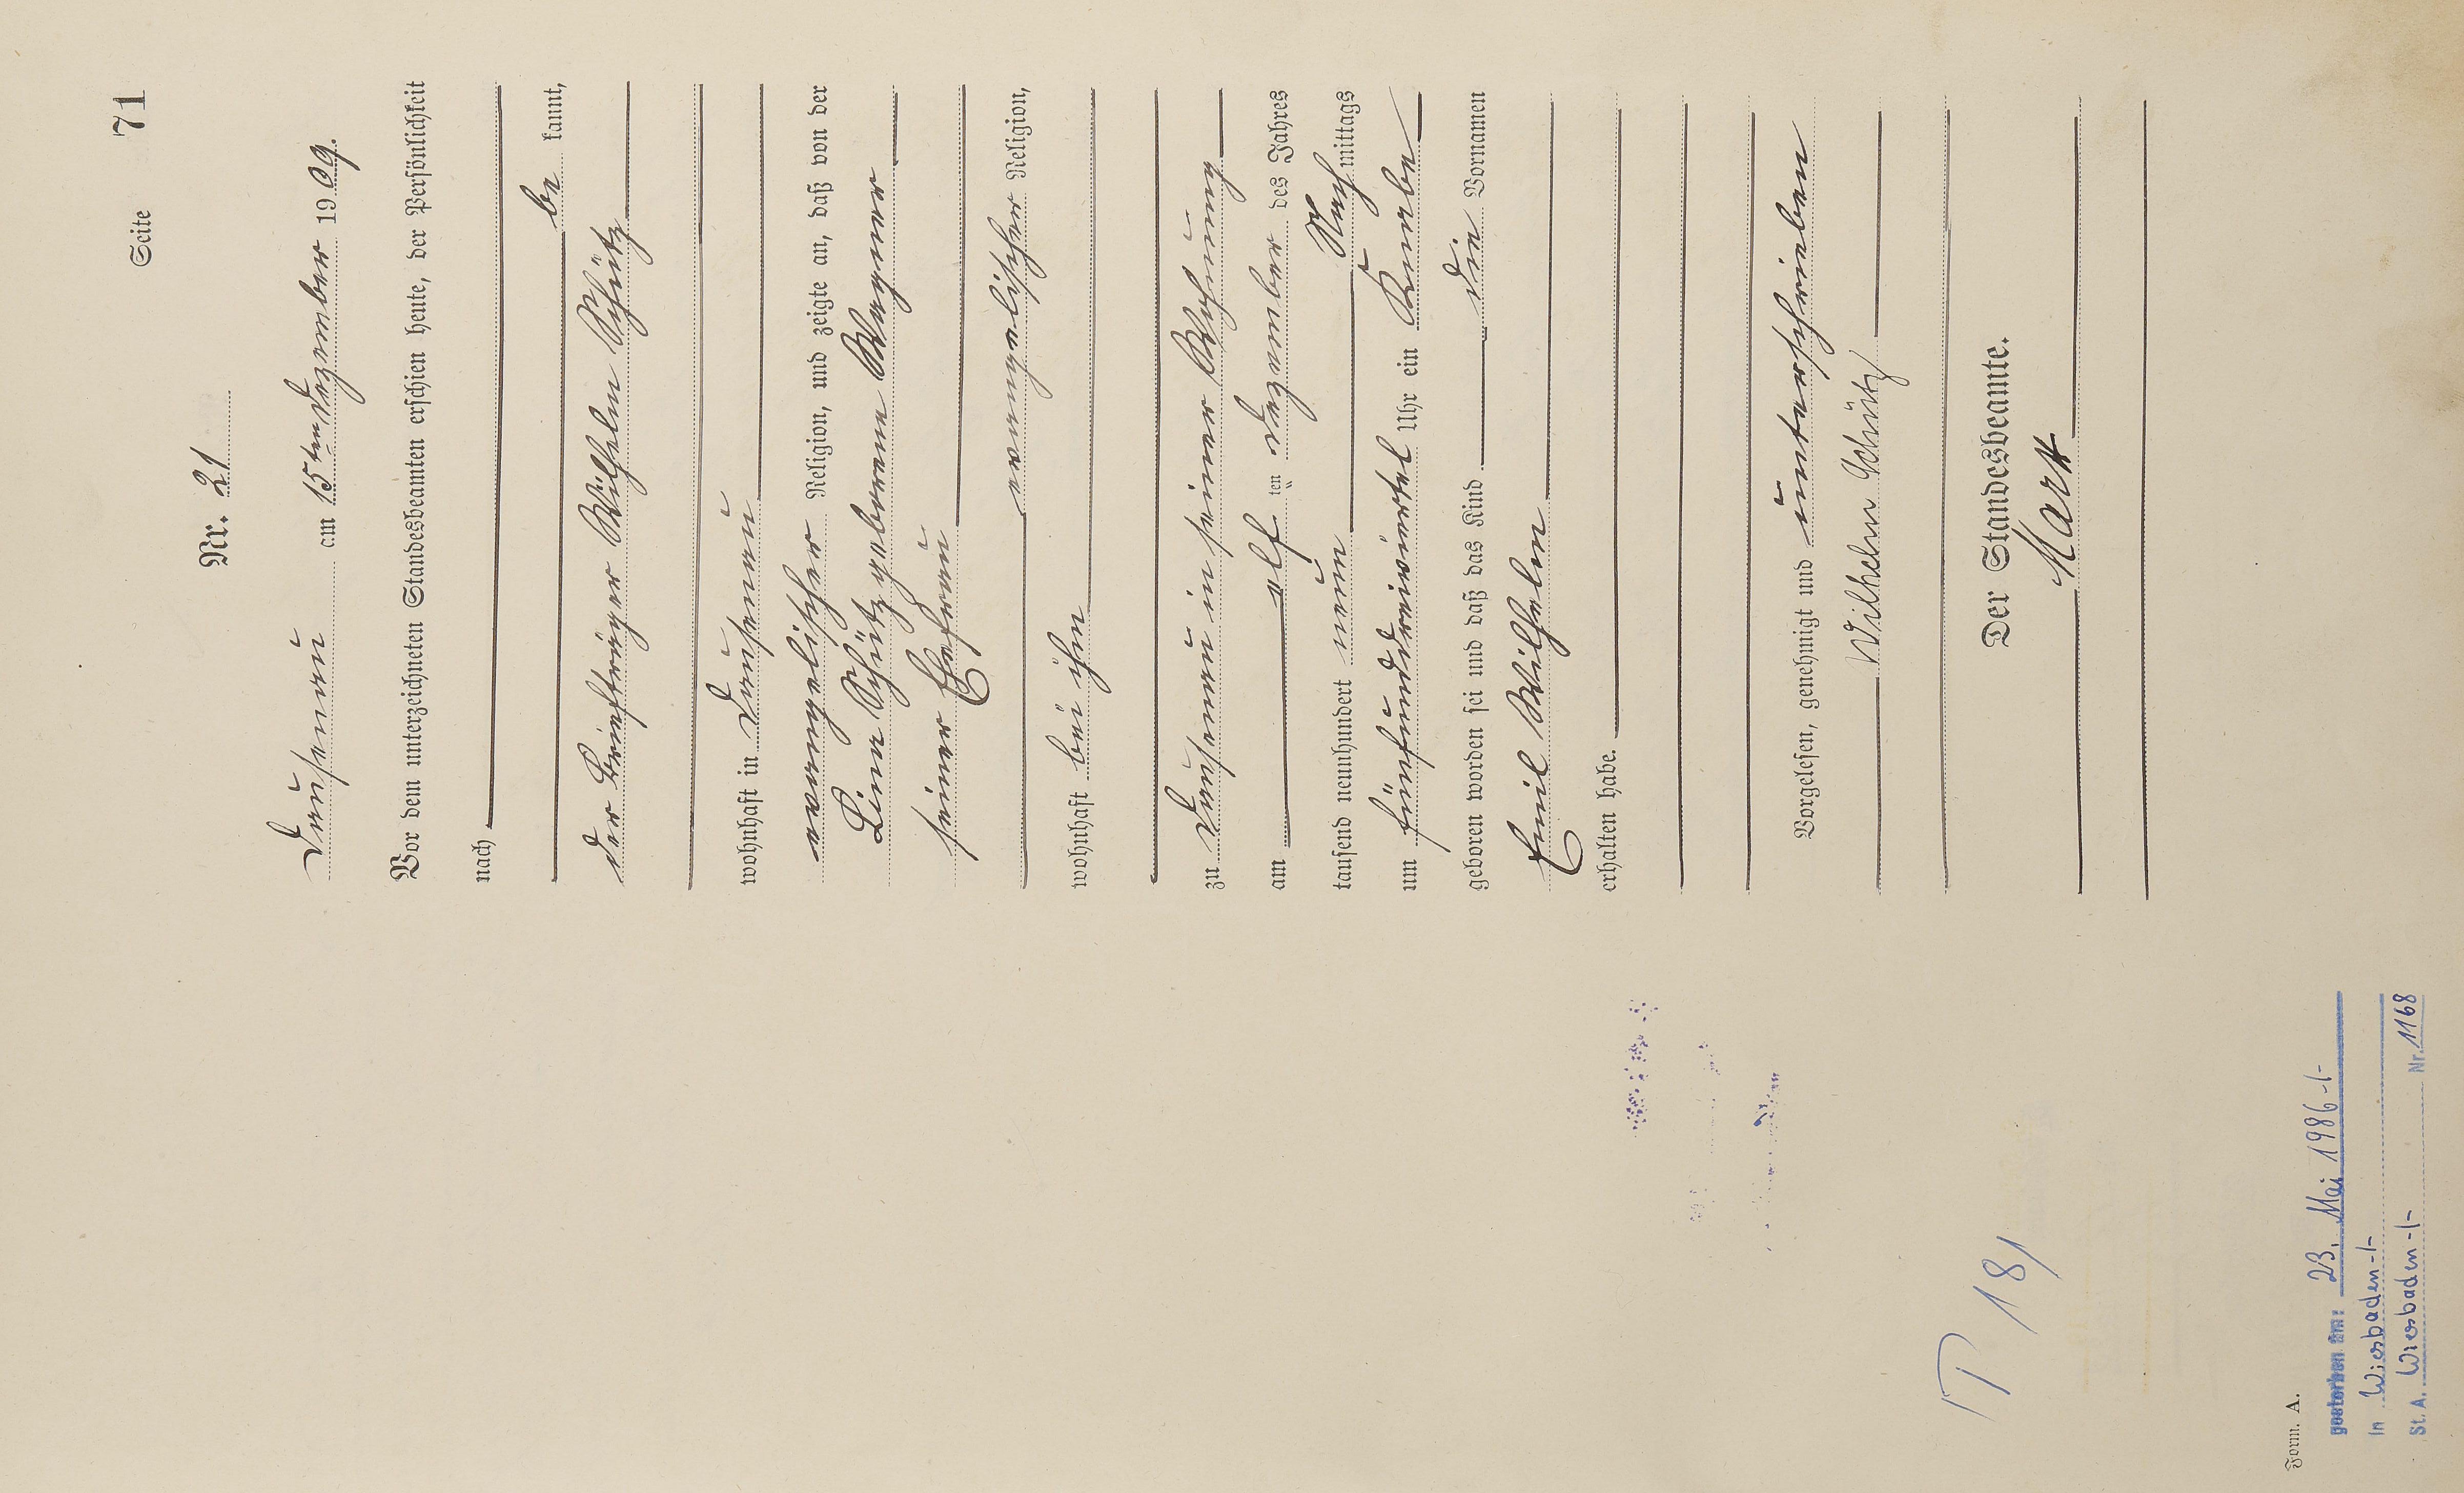 Seite 71
Nr. 21
Dausenau am 15ten Dezember 1909.
Vor dem unterzeichneten Standesbeamten erschien heute, der Persönlichkeit
nach
be kannt,
der Briefträger Wilhelm Schütz
wohnhaft in Dausenau
evangelischer Religion, und zeigte an, daß von der
Lina Schütz geborene Wagner
seiner Ehefrau
evangelischer Religion,
wohnhaft bei ihm
zu Dausenau in seiner Wohnung
am elf ten Dezember des Jahres
tausend neunhundert neun Nach mittags
um fünfunddreiviertel Uhr ein Knabe
geboren worden sei und daß das Kind die Vornamen
Emil Wilhelm
erhalten habe.
Vorgelesen, genehmigt und unterschrieben
Wilhelm Schütz
Der Standesbeamte.
Form. A.
gestorben am: 23. Mai 1986 -/-
in Wiesbaden -/-
St. A. Wiesbaden -/- Nr. 1168